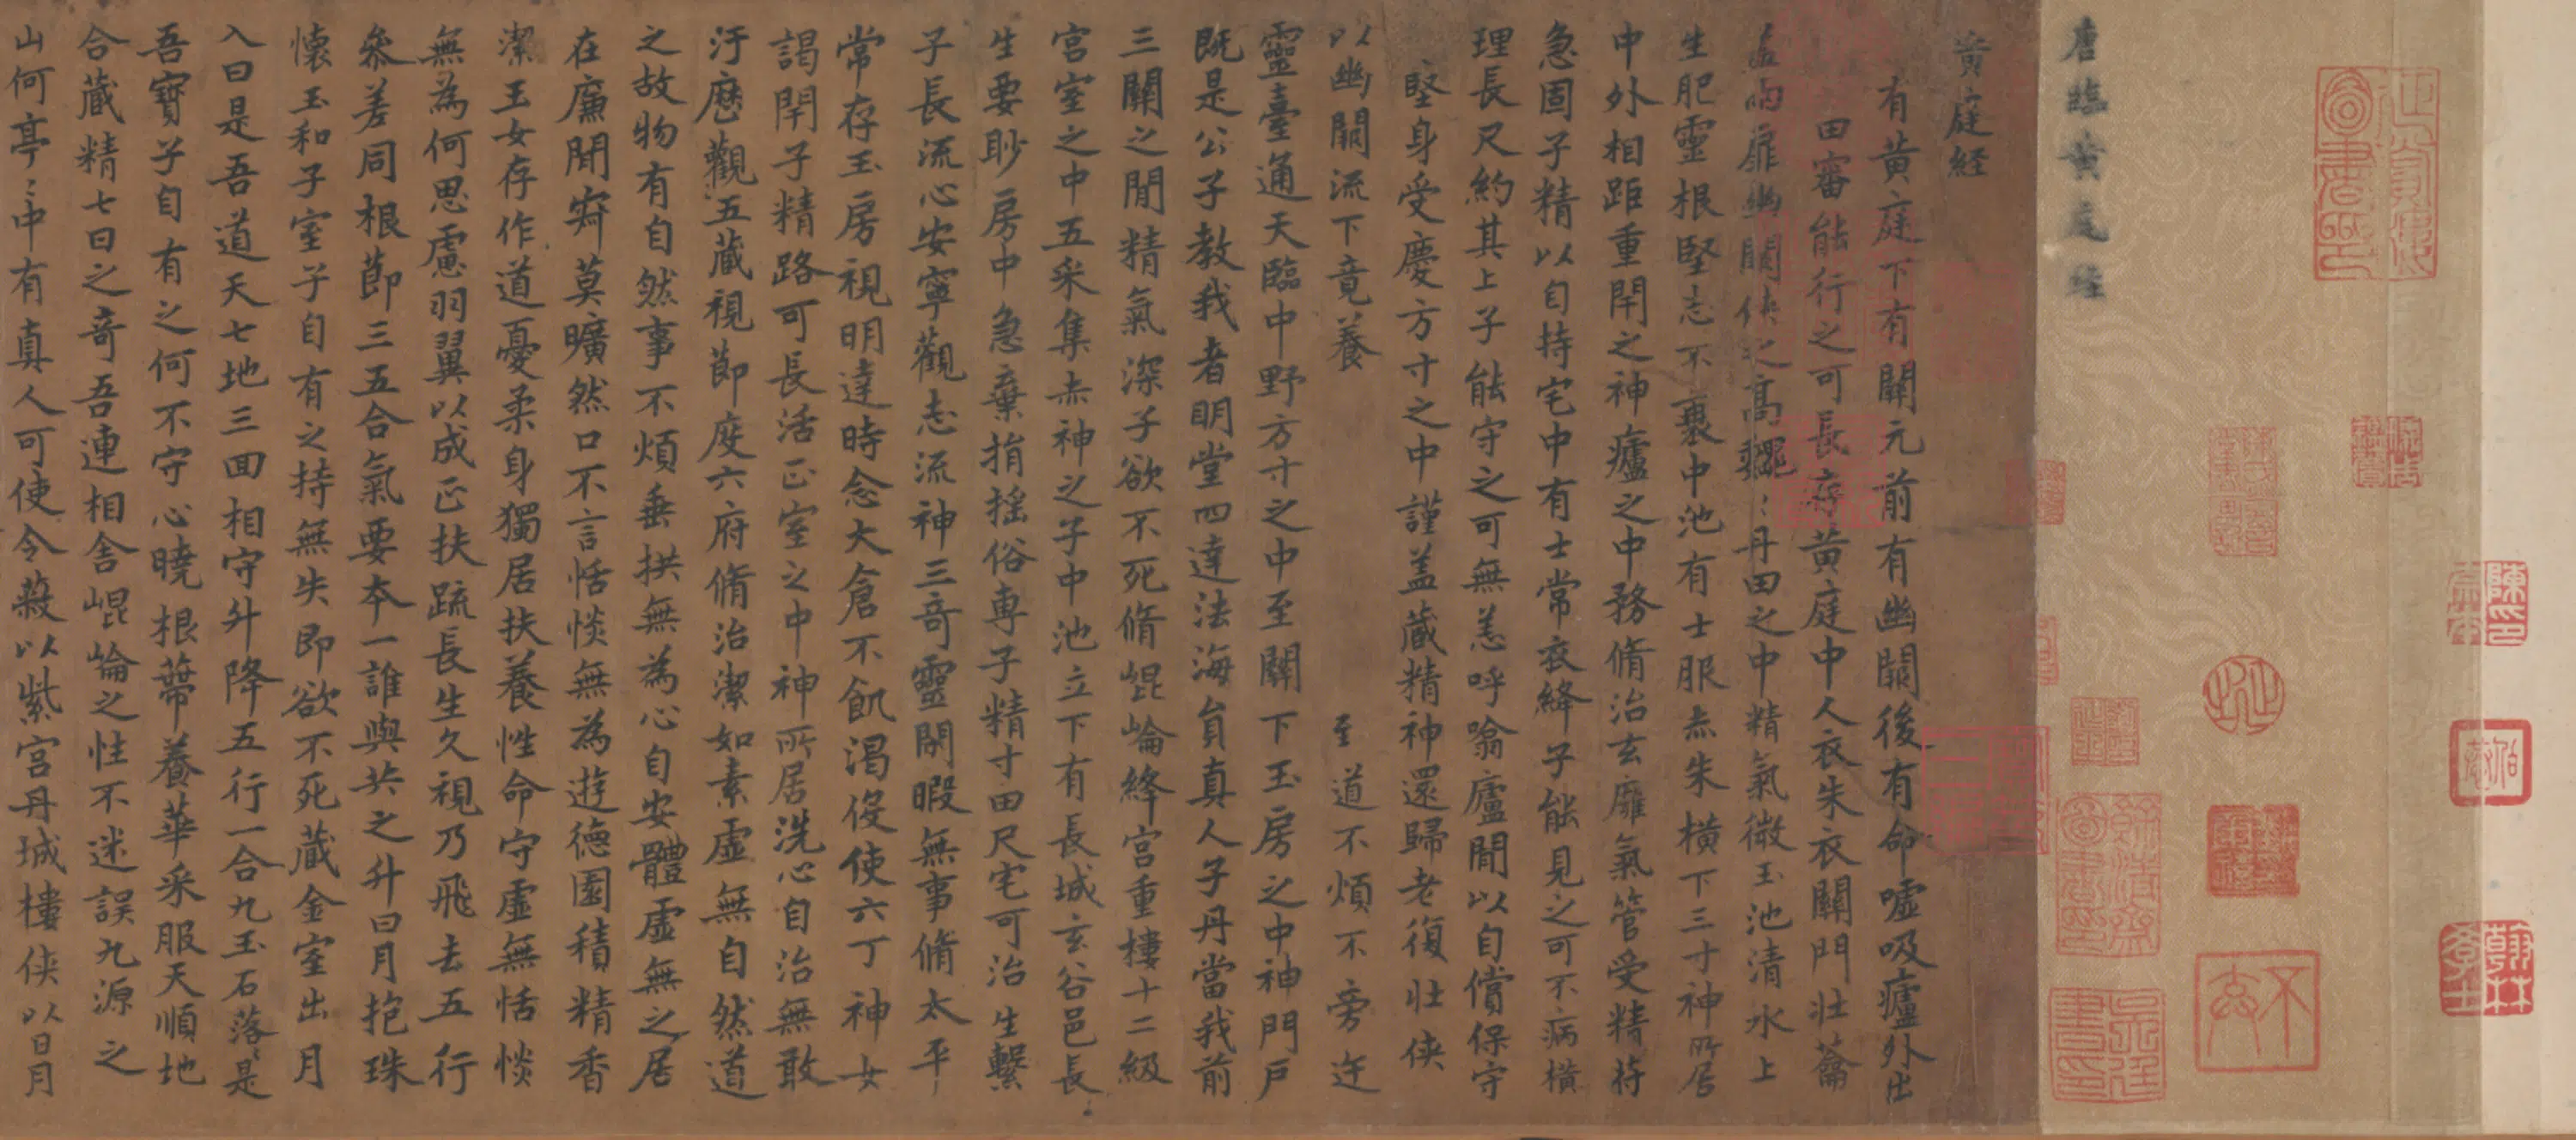 唐臨黄庭経
黄庭経
有黄庭下有關元前有幽闕後有命噓吸廬外出
田審能行之可長存黄庭中人衣朱衣關門壯蘥
兩扉幽闕俠之髙巍〻丹田之中精氣微玉池清水上
生肥靈根堅志不衰中池有士服赤朱横下三寸神所居
中外相距重閇之神廬之中務脩治玄廱氣管受精苻
急固子精以自持宅中有士常衣絳子能見之可不病横
理長尺約其上子能守之可無恙呼噏廬間以自償保守
堅身受慶方寸之中謹盖藏精神還歸老復壯俠
以幽闕流下竟養 至道不煩不旁迕
靈臺通天臨中野方寸之中至關下玉房之中神門戸
既是公子教我者明堂四達法海貟真人子丹當我前
三關之間精氣深子欲不死脩崐崘絳宫重樓十二級
宫室之中五采集赤神之子中池立下有長城玄谷邑長
生要眇房中急棄捐摇俗専子精寸田尺宅可治生繫
子長流心安寧觀志流神三竒靈閑暇無事脩太平
常存玉房視明達時念大倉不飢渇役使六丁神女
謁閇子精路可長活正室之中神所居洗心自治無敢
汙歴觀五藏視節度六府脩治潔如素虚無自然道
之故物有自然事不煩垂拱無為心自安體虚無之居
在廉間寂莫曠然口不言恬惔無為遊德園積精香
潔玉女存作道憂柔身獨居扶養性命守虚無恬惔
無為何思慮羽翼以成正扶疏長生久視乃飛去五行
叅差同根節三五合氣要本一誰與共之升日月抱珠
懐玉和子室子自有之持無失即欲不死藏金室出月
入日是吾道天七地三回相守升降五行一合九玉石落〻是
吾寶子自有之何不守心曉根蔕養華采服天順地
合藏精七日之竒吾連相舍崐崘之性不迷誤九源之
山何亭〻中有真人可使令蔽以紫宫丹城樓俠以日月